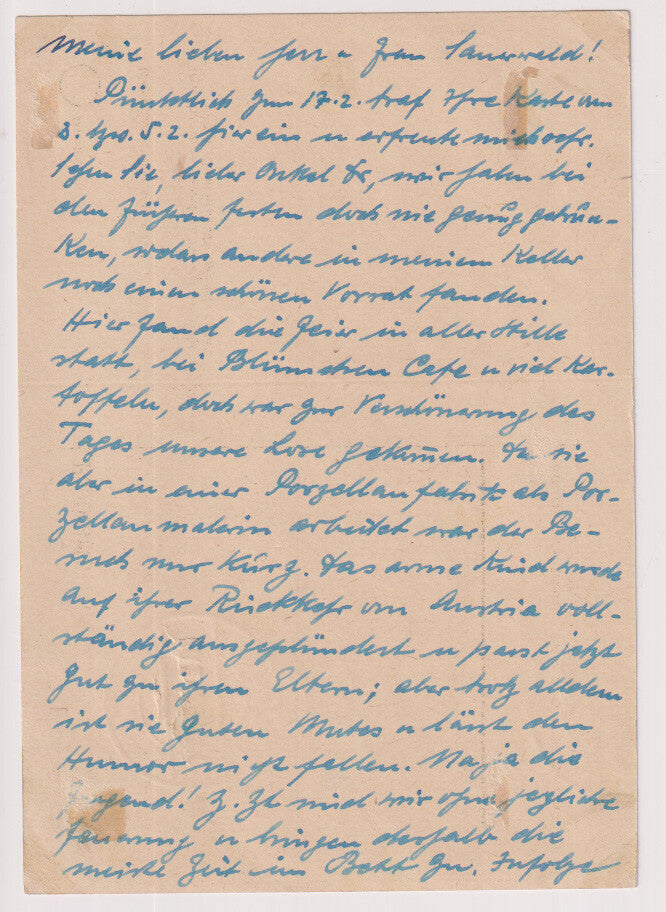 Meine lieben Herr u Frau Sauerwald!
Pünktlich zum 17.2. traf Ihre Karte vom
3. bzw. 5.2. hier ein u erfreute mich sehr.
Sehen Sie, lieber Onkel Dr, wir haben bei
den früheren festen doch nie genug getrun-
ken, sodass andere in meinem Keller
noch einen schönen Vorrat fanden.
Hier fand die Feier in aller Stille
statt, bei Blümchen Cafe u viel Kar-
toffeln, doch war zur Verschönerung des
Tages unsere Lore gekommen. Da sie
aber in einer Porzellanfabrik als Por-
zellanmalerin arbeitet war der Be-
such nur kurz. Das arme Kind wurde
auf ihrer Rückkehr von Austria voll-
ständig ausgeplündert u passt jetzt
gut zu ihren Eltern; aber trotz alldem
ist sie guten Mutes u lässt den
Humor nicht fallen. Naja die
Jugend! Z. Zt sind wir ohne jegliche
Feuerung u bringen deshalb die
meiste Zeit im Bett zu. Infolge